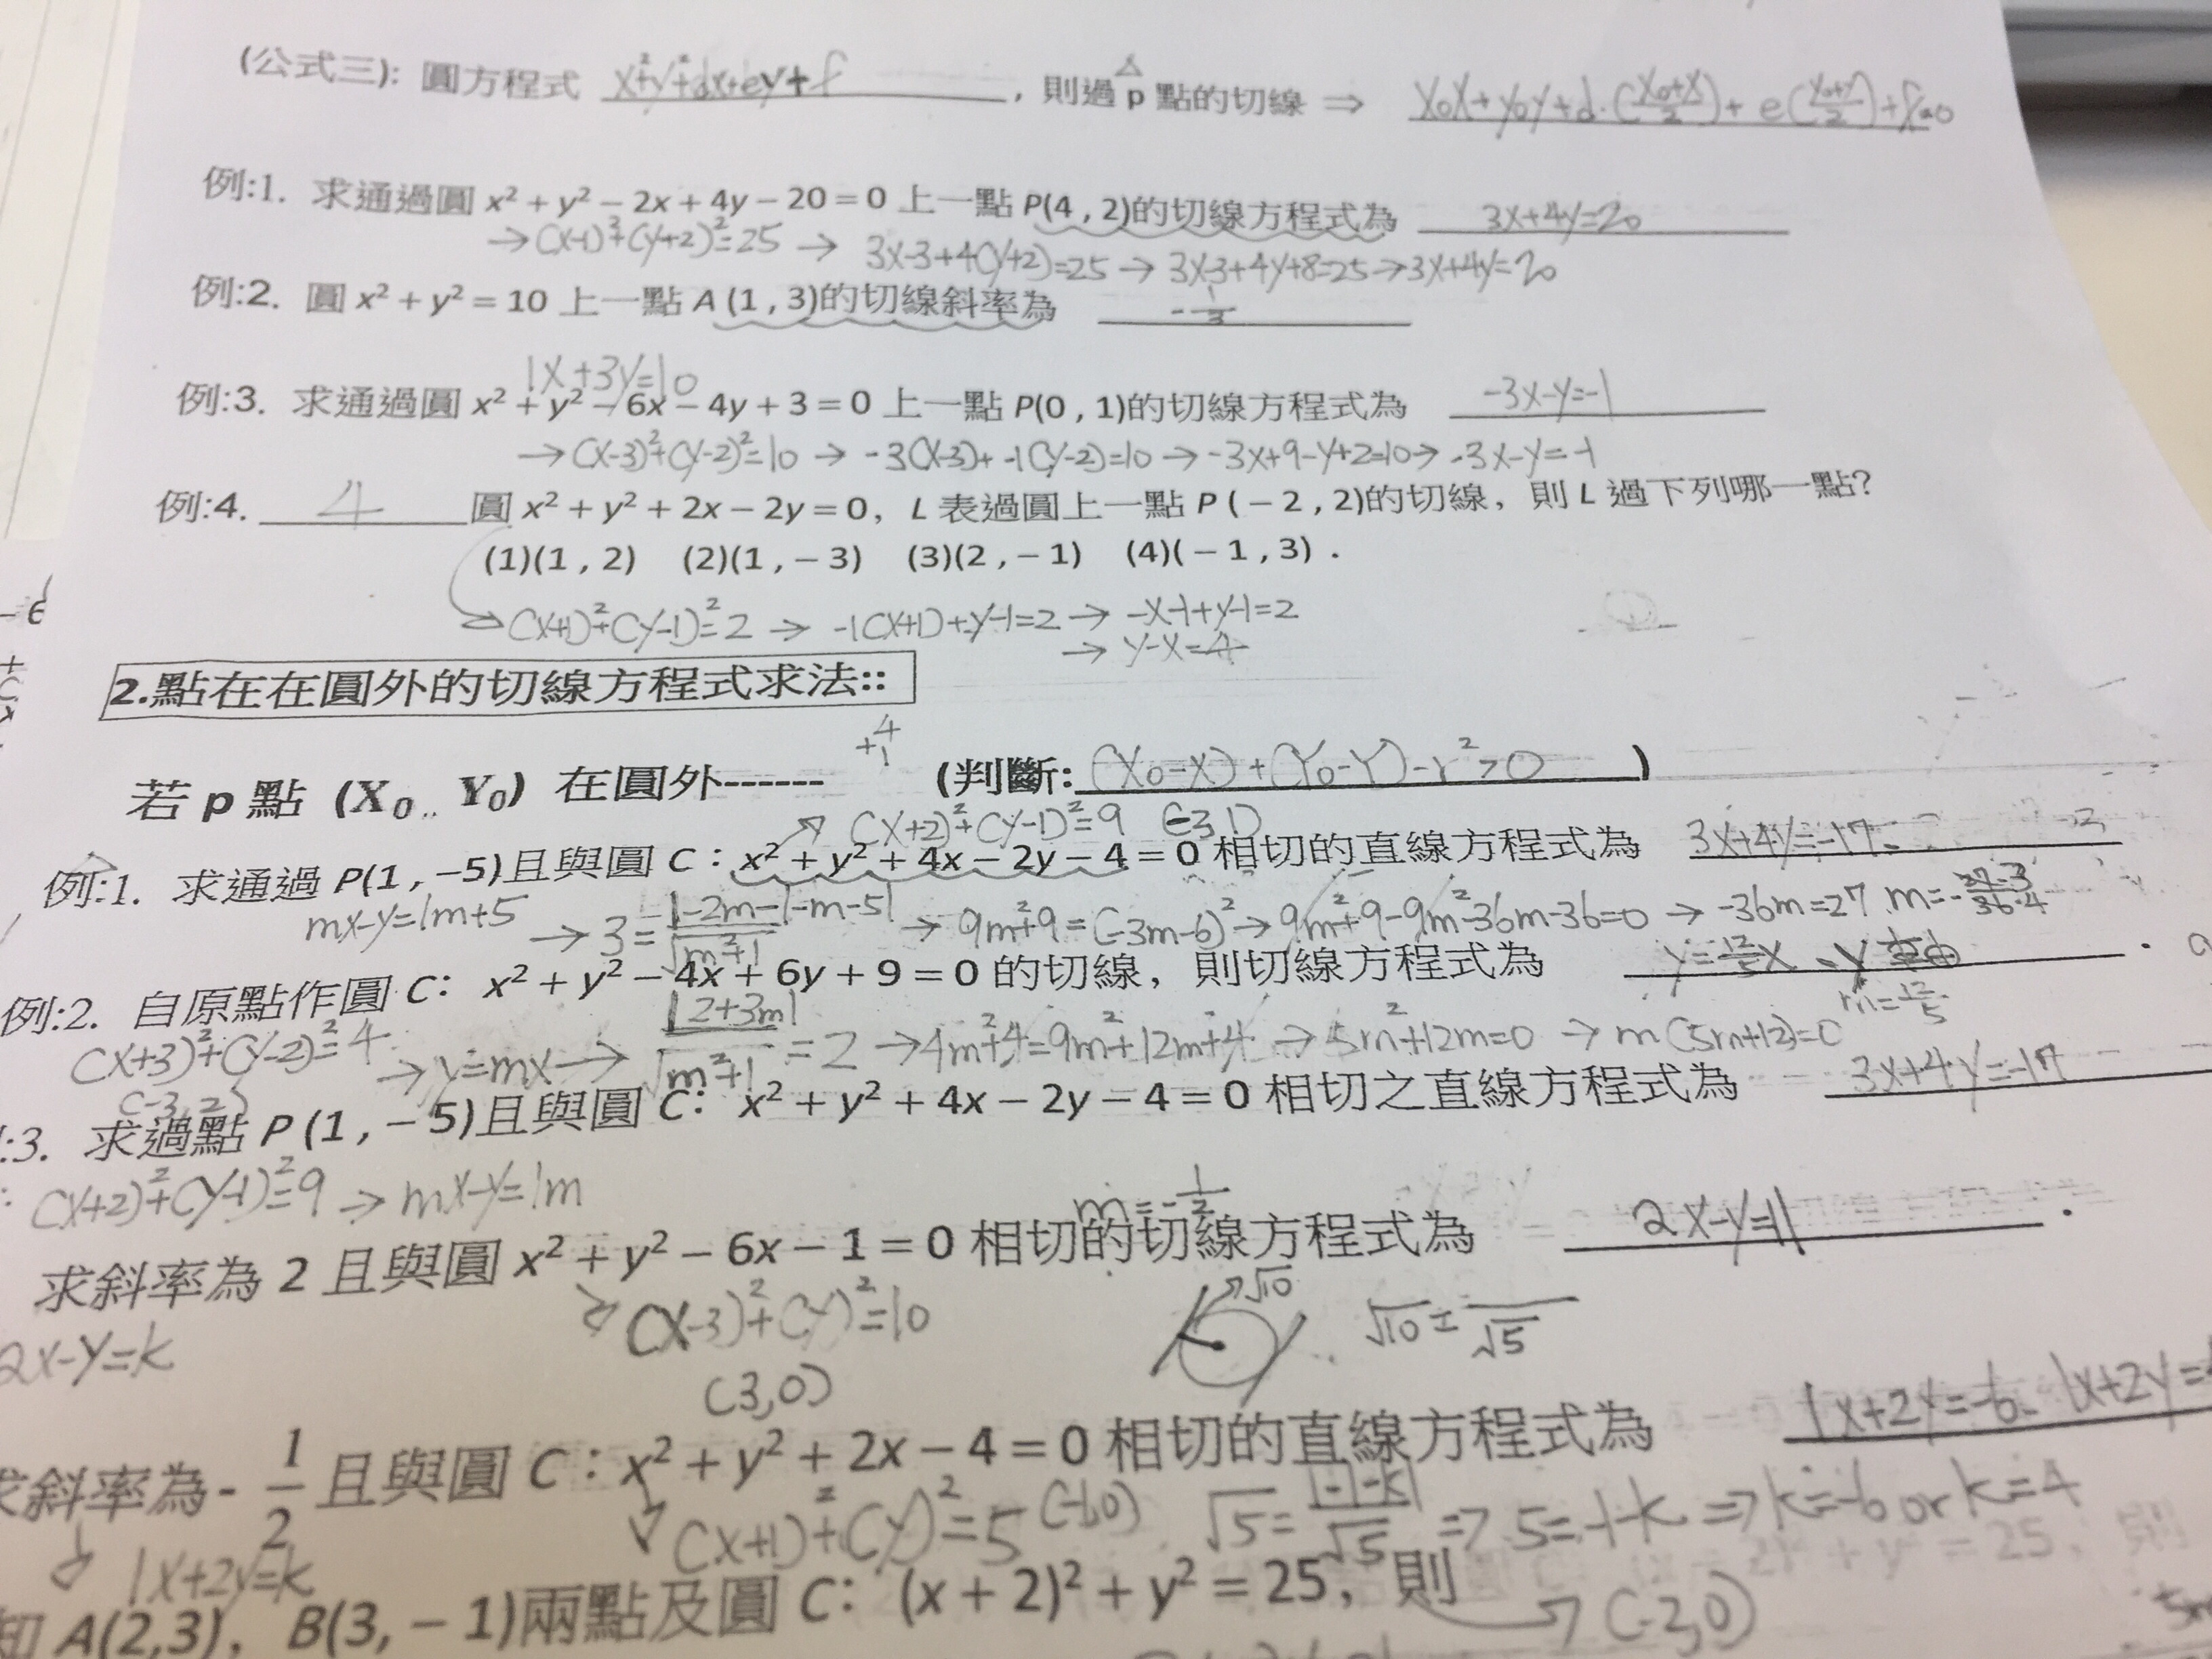 (公式三): 圓方程式 x²+y²+dx+ey+f , 則過 p 點的切線 ⇒ x₀x+y₀y+d·(x₀+x/2)+e(y₀+y/2)+f=0
例:1. 求通過圓 x² + y² − 2x + 4y − 20 = 0 上一點 P(4 , 2)的切線方程式為 3x+4y=20
→(x-1)²+(y+2)²=25 → 3x-3+4(y+2)=25 → 3x-3+4y+8=25→3x+4y=20
例:2. 圓 x² + y² = 10 上一點 A (1 , 3)的切線斜率為 -1/3
1x+3y=10
例:3. 求通過圓 x² + y² − 6x − 4y + 3 = 0 上一點 P(0 , 1)的切線方程式為 -3x-y=-1
→(x-3)²+(y-2)²=10 → -3(x-3)+-1(y-2)=10 → -3x+9-y+2=10→ -3x-y=-1
例:4. 4 圓 x² + y² + 2x − 2y = 0, L 表過圓上一點 P ( − 2 , 2)的切線, 則 L 過下列哪一點?
(1)(1 , 2) (2)(1 , − 3) (3)(2 , − 1) (4)( − 1 , 3) .
(x+1)²+(y-1)²=2 → -1(x+1)+y-1=2 → -x-1+y-1=2
→ y-x=4
2.點在在圓外的切線方程式求法::
+4
+1
若 p 點 (X₀ .. Y₀) 在圓外------ (判斷: (X₀-X)+(Y₀-Y)-r²>0 )
(x+2)²+(y-1)²=9 (-2,1)
例:1. 求通過 P(1 , −5)且與圓 C : x² + y² + 4x − 2y − 4 = 0 相切的直線方程式為 3x+4y=-17
mx-y=1m+5 → 3=|-2m-1-m-5|/√m²+1 → 9m²+9=(-3m-6)² → 9m²+9-9m²-36m-36=0 → -36m=27 m=-27/36 -3/4
例:2. 自原點作圓 C: x² + y² − 4x + 6y + 9 = 0 的切線, 則切線方程式為 y=-12/5x
m=12/5
(x+3)²+(y-2)²=4 → y=mx → |2+3m|/√m²+1=2 →4m²+4=9m²+12m+4 → 5m²+12m=0 → m(5m+12)=0
(-3,2)
:3. 求過點 P (1 , − 5)且與圓 C: x² + y² + 4x − 2y − 4 = 0 相切之直線方程式為 3x+4y=-17
(x+2)²+(y-1)²=9 → mx-y=1m
m=-1/2
求斜率為 2 且與圓 x² + y² − 6x − 1 = 0 相切的切線方程式為 2x-y=11 .
2x-y=k (x-3)²+(y)²=10 √10 √10= /√5
(3,0)
求斜率為- 1/2 且與圓 C : x² + y² + 2x − 4 = 0 相切的直線方程式為 1x+2y=-6 1x+2y=
1x+2y=k (x+1)²+(y)²=5 (-1,0) √5=|-1-k|/√5 ⇒ 5=-1-k ⇒ k=-6 or k=4
知 A(2,3), B(3, − 1)兩點及圓 C: (x + 2)² + y² = 25, 則 (-2,0)